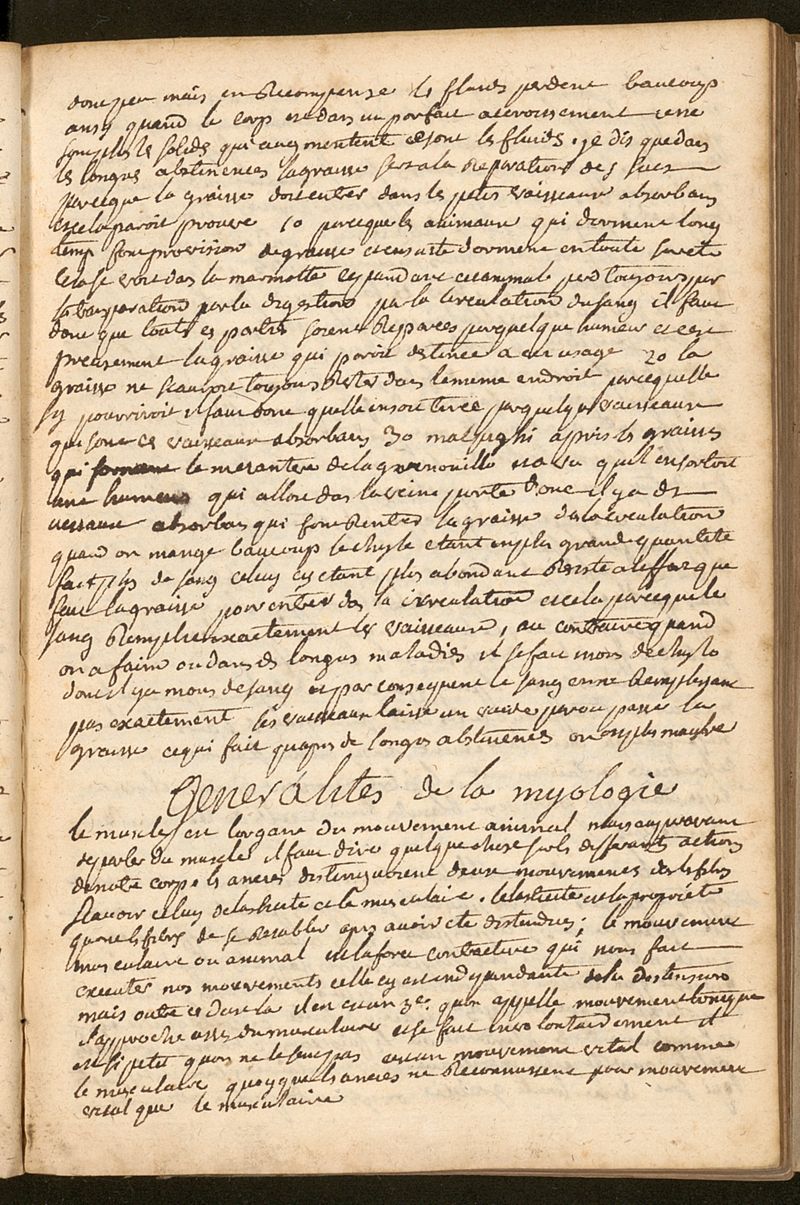 donc peu mais en Recompense les fluides perdent baucoup
ansy quand le corp est dans un parfait accroissement ce ne
sont plus les solides qui augmentent ce sont les fluides. je dis que dans
les longues abstinences la graisse sert a la Reparation des sucs
parceque la graisse doit entrer dans les petits vaisseaux absorbans
et cela paroit prouvé 1o parceque les animaux qui dorment long
temp font provision de graisse et ensuite dorment en toute sureté
cela se voit dans la marmotte cependant cet animal perd toujours par
la transpiration par la digestion par la circulation du sang il faut
donc que toutes ces parties soient Reparées par quelque humeur et c'est
precisement la graisse qui paroit destinée a cet usage 2o la
graisse ne scauroit toujours Rester dans le meme endroit parcequelle
sy pourriroit il faut donc quelle en soit tirée par quelques vaisseaux
qui sont ces vaisseaux absorbans 3o malpighi apres les graisses
qui le mesantere de la grenouille a vu quil en sortoit
une humeur qui alloit dans la veine porte donc il y a des
vessaux absorbans qui font Rentrer la graisse dans la circulation
quand on mange baucoup le chyle etant en plus grande quantité
fait plus de sang celuy cy etant plus abondant Resiste a leffort que
fait la graisse pour entrer dans la circulation et cela parceque le
sang Remplit exactement les vaisseaux, au contraire quand
on a faim ou dans des longues maladies il se fait moins de chyle
donc il y a moins de sang et par consequent le sang ne Remplissant
pas exactement les vaisseaux laisse un vuide par ou passe la
graisse ce qui fait quapres de longues abstinences on est plus maigre
Generalités de la myologie
le muscle est lorgane du mouvement animal mais auparavant
de parler du muscle il faut dire quelque chose sur les differants actions
de notre corp. les anciens distinguoient deux mouvements dans les fibres
scavoir celuy delasticité et le musculaire. lelasticité est la propriété
quont les fibres de se Retablir apres avoir eté distendues; le mouvement
musculaire ou animal est la force contractive qui nous fait
executer nos mouvements celle cy est independante de la distension
mais outre ces deux la il en est un 3e. quon appelle mouvement tonique
il approche assez du musculaire et se fait mais lentement il
est si petit quon ne le sent pas aucun mouvement vital comme
le musculaire quoyque les anciens ne Reconnussent pour mouvement
vital que le musculaire